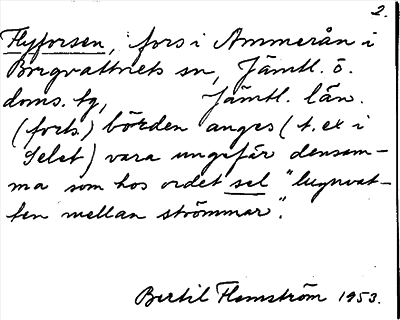 2.
Flyforsen, fors i Ammerån i
Borgvattnets sn, Jämtl. ö.
doms. tg, Jämtl. län.
(forts.) börden anges (t. ex i
Selet) vara ungefär densam-
ma som hos ordet sel "lugnvat-
ten mellan strömmar".
Bertil Flemström 1953.